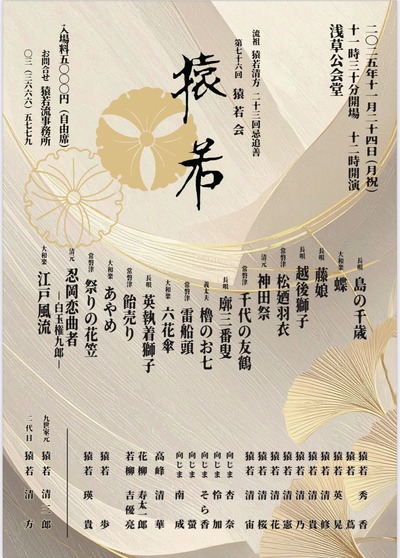 二〇二五年十一月二十四日(月祝)
十一時三十分開場 十二時開演
浅草公会堂
流祖 猿若清方 二十三回忌追善
第七十六回 猿若会
猿若
入場料五〇〇〇円(自由席)
お問合せ 猿若流事務所
〇三(三六六六)五七七九
長唄 島の千歳
大和楽 蝶
長唄 藤娘
長唄 越後獅子
常磐津 松廼羽衣
清元 神田祭
常磐津 千代の友鶴
長唄 廓三番叟
義太夫 櫓のお七
常磐津 雷船頭
大和楽 六花傘
長唄 英執着獅子
長唄 飴売り
大和楽 あやめ
常磐津 祭りの花笠
清元 忍岡恋曲者
―白玉権九郎―
大和楽 江戸風流
猿若 秀香
猿若 蔦
猿若 英晃
猿若 清修
猿若 清貴
猿若 清乃
猿若 清憲
猿若 清花
猿若 清桜
猿若 清宙
向じま 杏奈
向じま 怜加
向じま そら香
向じま 萤
向じま 南成
高峰 清華
花柳 寿太一郎
若柳 吉優亮
猿若 歩
猿若 瑛貴
九世家元 猿若 清三郎
二代目 猿若 清方